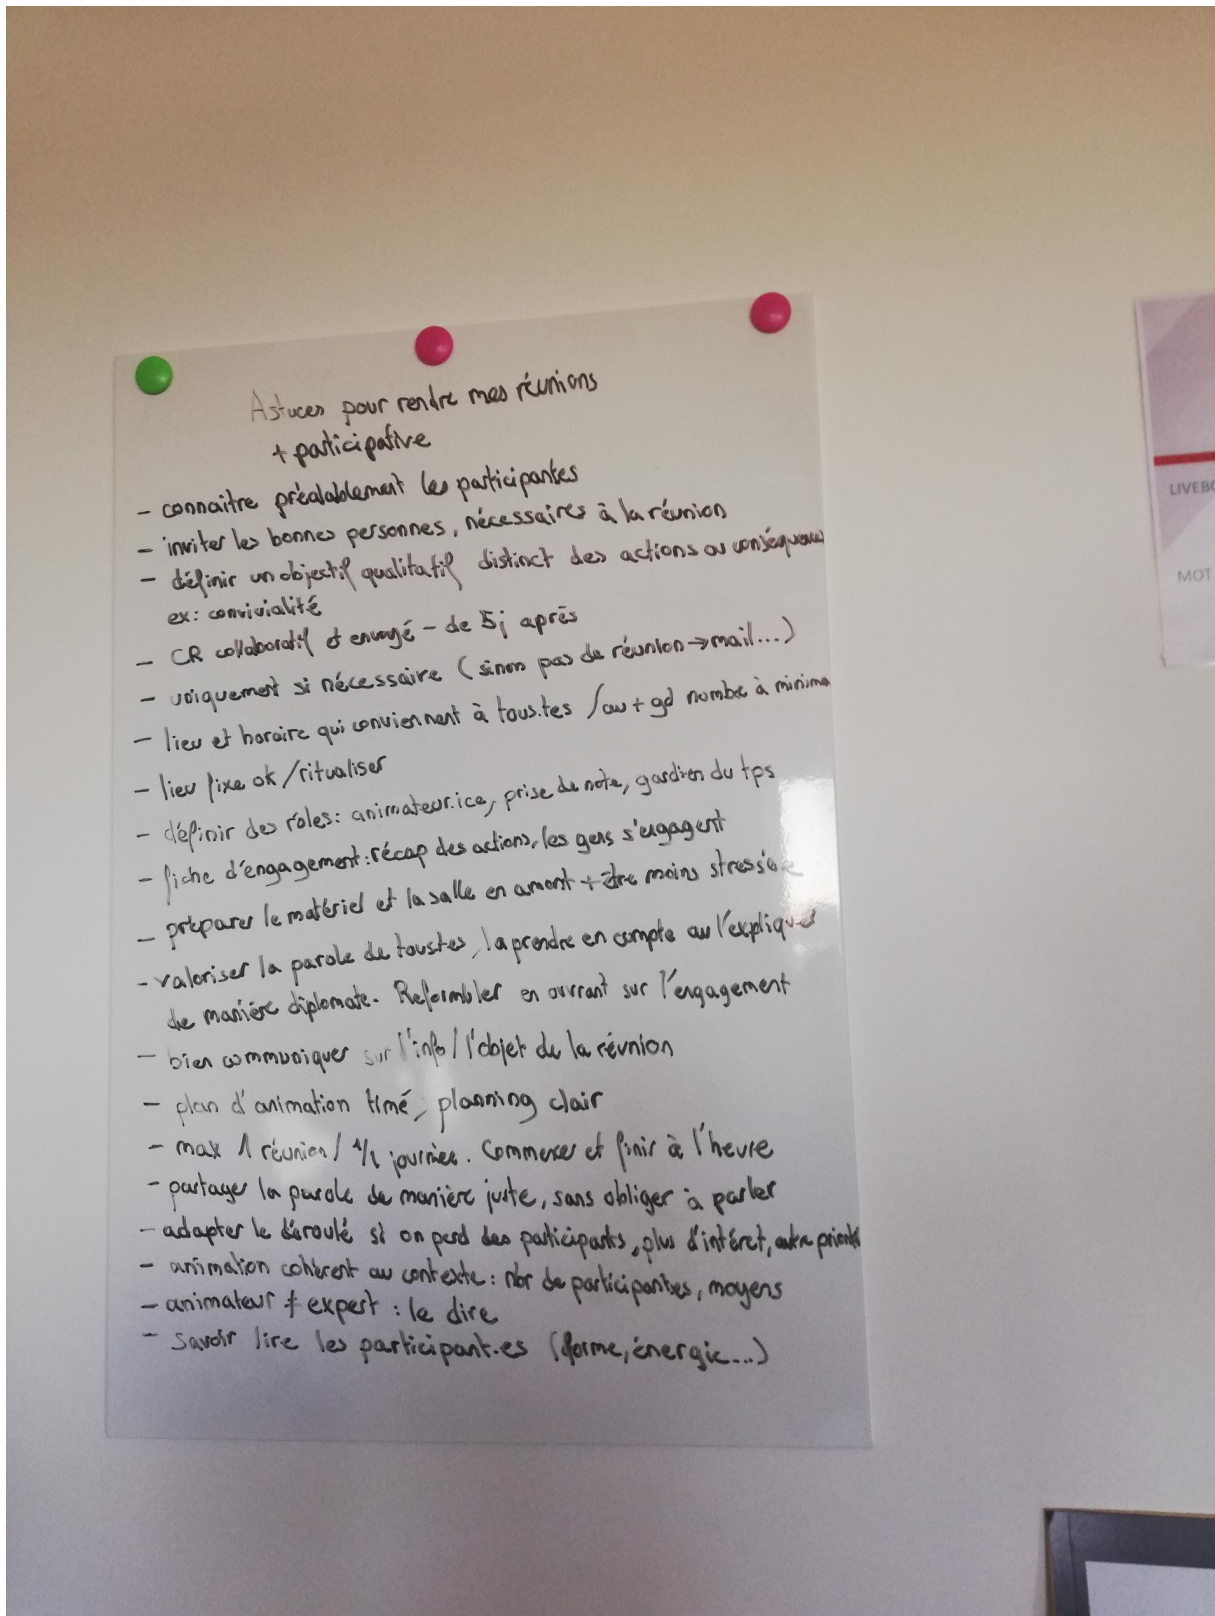 Astuces pour rendre mes réunions
+ participative
- connaitre préalablement les participantes
- inviter les bonnes personnes, nécessaires à la réunion
- définir un objectif qualitatif distinct des actions ou
ex: convivialité
- CR collaboratif et envoyé - de 5j après
- uniquement si nécessaire (sinon pas de réunion → mail...)
- lieu et horaire qui conviennent à tous.tes / au + gd nombre à minima
- lieu fixe ok / ritualiser
- définir des rôles: animateur.ice, prise de note, gardien du tps
- fiche d'engagement: récap des actions, les gens s'engagent
- préparer le matériel et la salle en amont + être moins
- valoriser la parole de toustes, la prendre en compte ou l'expliquer
de manière diplomate. Reformuler en ouvrant sur l'engagement
- bien communiquer sur l'info / l'objet de la réunion
- plan d'animation timé, planning clair
- max 1 réunion / 1/2 journée. Commencer et finir à l'heure
- partager la parole de manière juste, sans obliger à parler
- adapter le déroulé si on perd des participants, plus d'intérêt, autre
- animation cohérent au contexte: nbr de participantes, moyens
- animateur ≠ expert : le dire
- savoir lire les participant.es (forme, énergie...)
LIVEBO
MOT